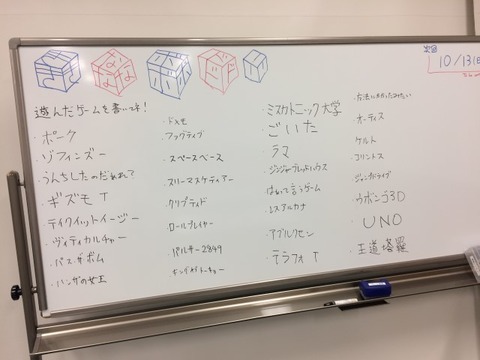 次回
10/13(日)
遊んだゲームを書いてネ!
・ポーク
・ゾフィンズー
・うんちしたのだれよ?
・ギズモ T
・テイクイットイージー
・ヴィティカルチャー
・パスザボム
・ハンザの女王
・ドメモ
・フラグティブ
・スペースベース
・スリーマスケティアー
・クリプティド
・ロールプレイヤー
・バルチー2849
・キングオブトーキョー
・ミスカトニック大学
・ごいた
・ラマ
・ジンジャーブレッドハウス
・はぁって言うゲーム
・レスアルカナ
・アブルクセン
・テラフォ T
・オーディス
・ケルト
・コリントス
・ジャングルドライブ
・ウボンゴ3D
・UNO
・王道塔羅